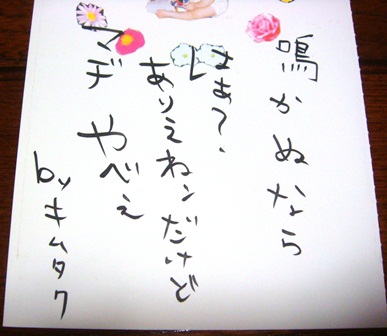 鳴かぬなら
はぁ?、
ありえねンだけど
マヂ やべぇ
byキムタク